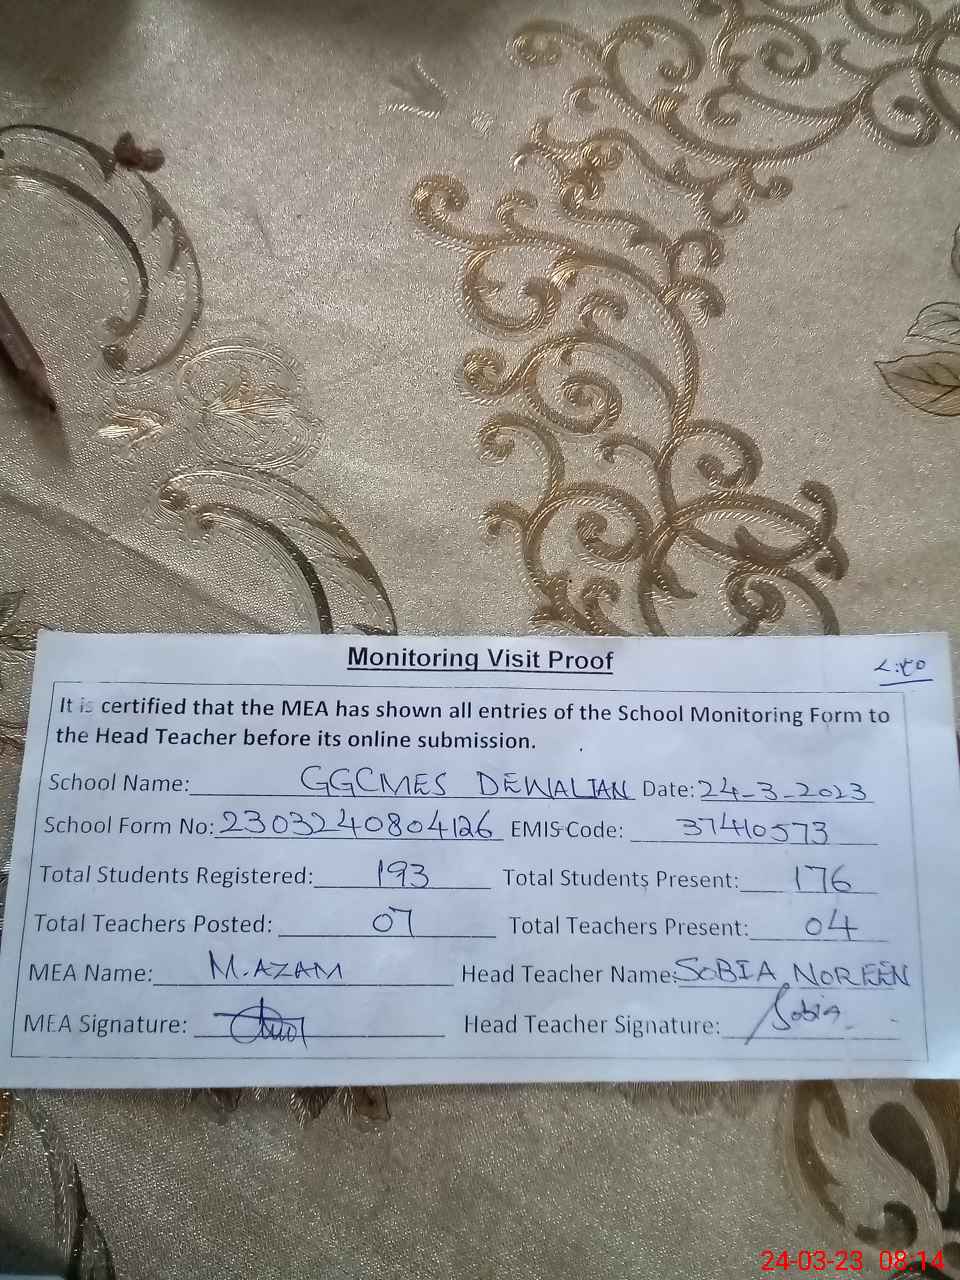 Monitoring Visit Proof
It is certified that the MEA has shown all entries of the School Monitoring Form to
the Head Teacher before its online submission.
School Name: GGCMES DEWALIAN Date: 24-3-2023
School Form No: 2303240804126 EMIS Code: 37410573
Total Students Registered: 193 Total Students Present: 176
Total Teachers Posted: 07 Total Teachers Present: 04
MEA Name: M.AZAM Head Teacher Name: SOBIA NOREEN
MEA Signature: Head Teacher Signature: Sobia
24-03-23 08:14